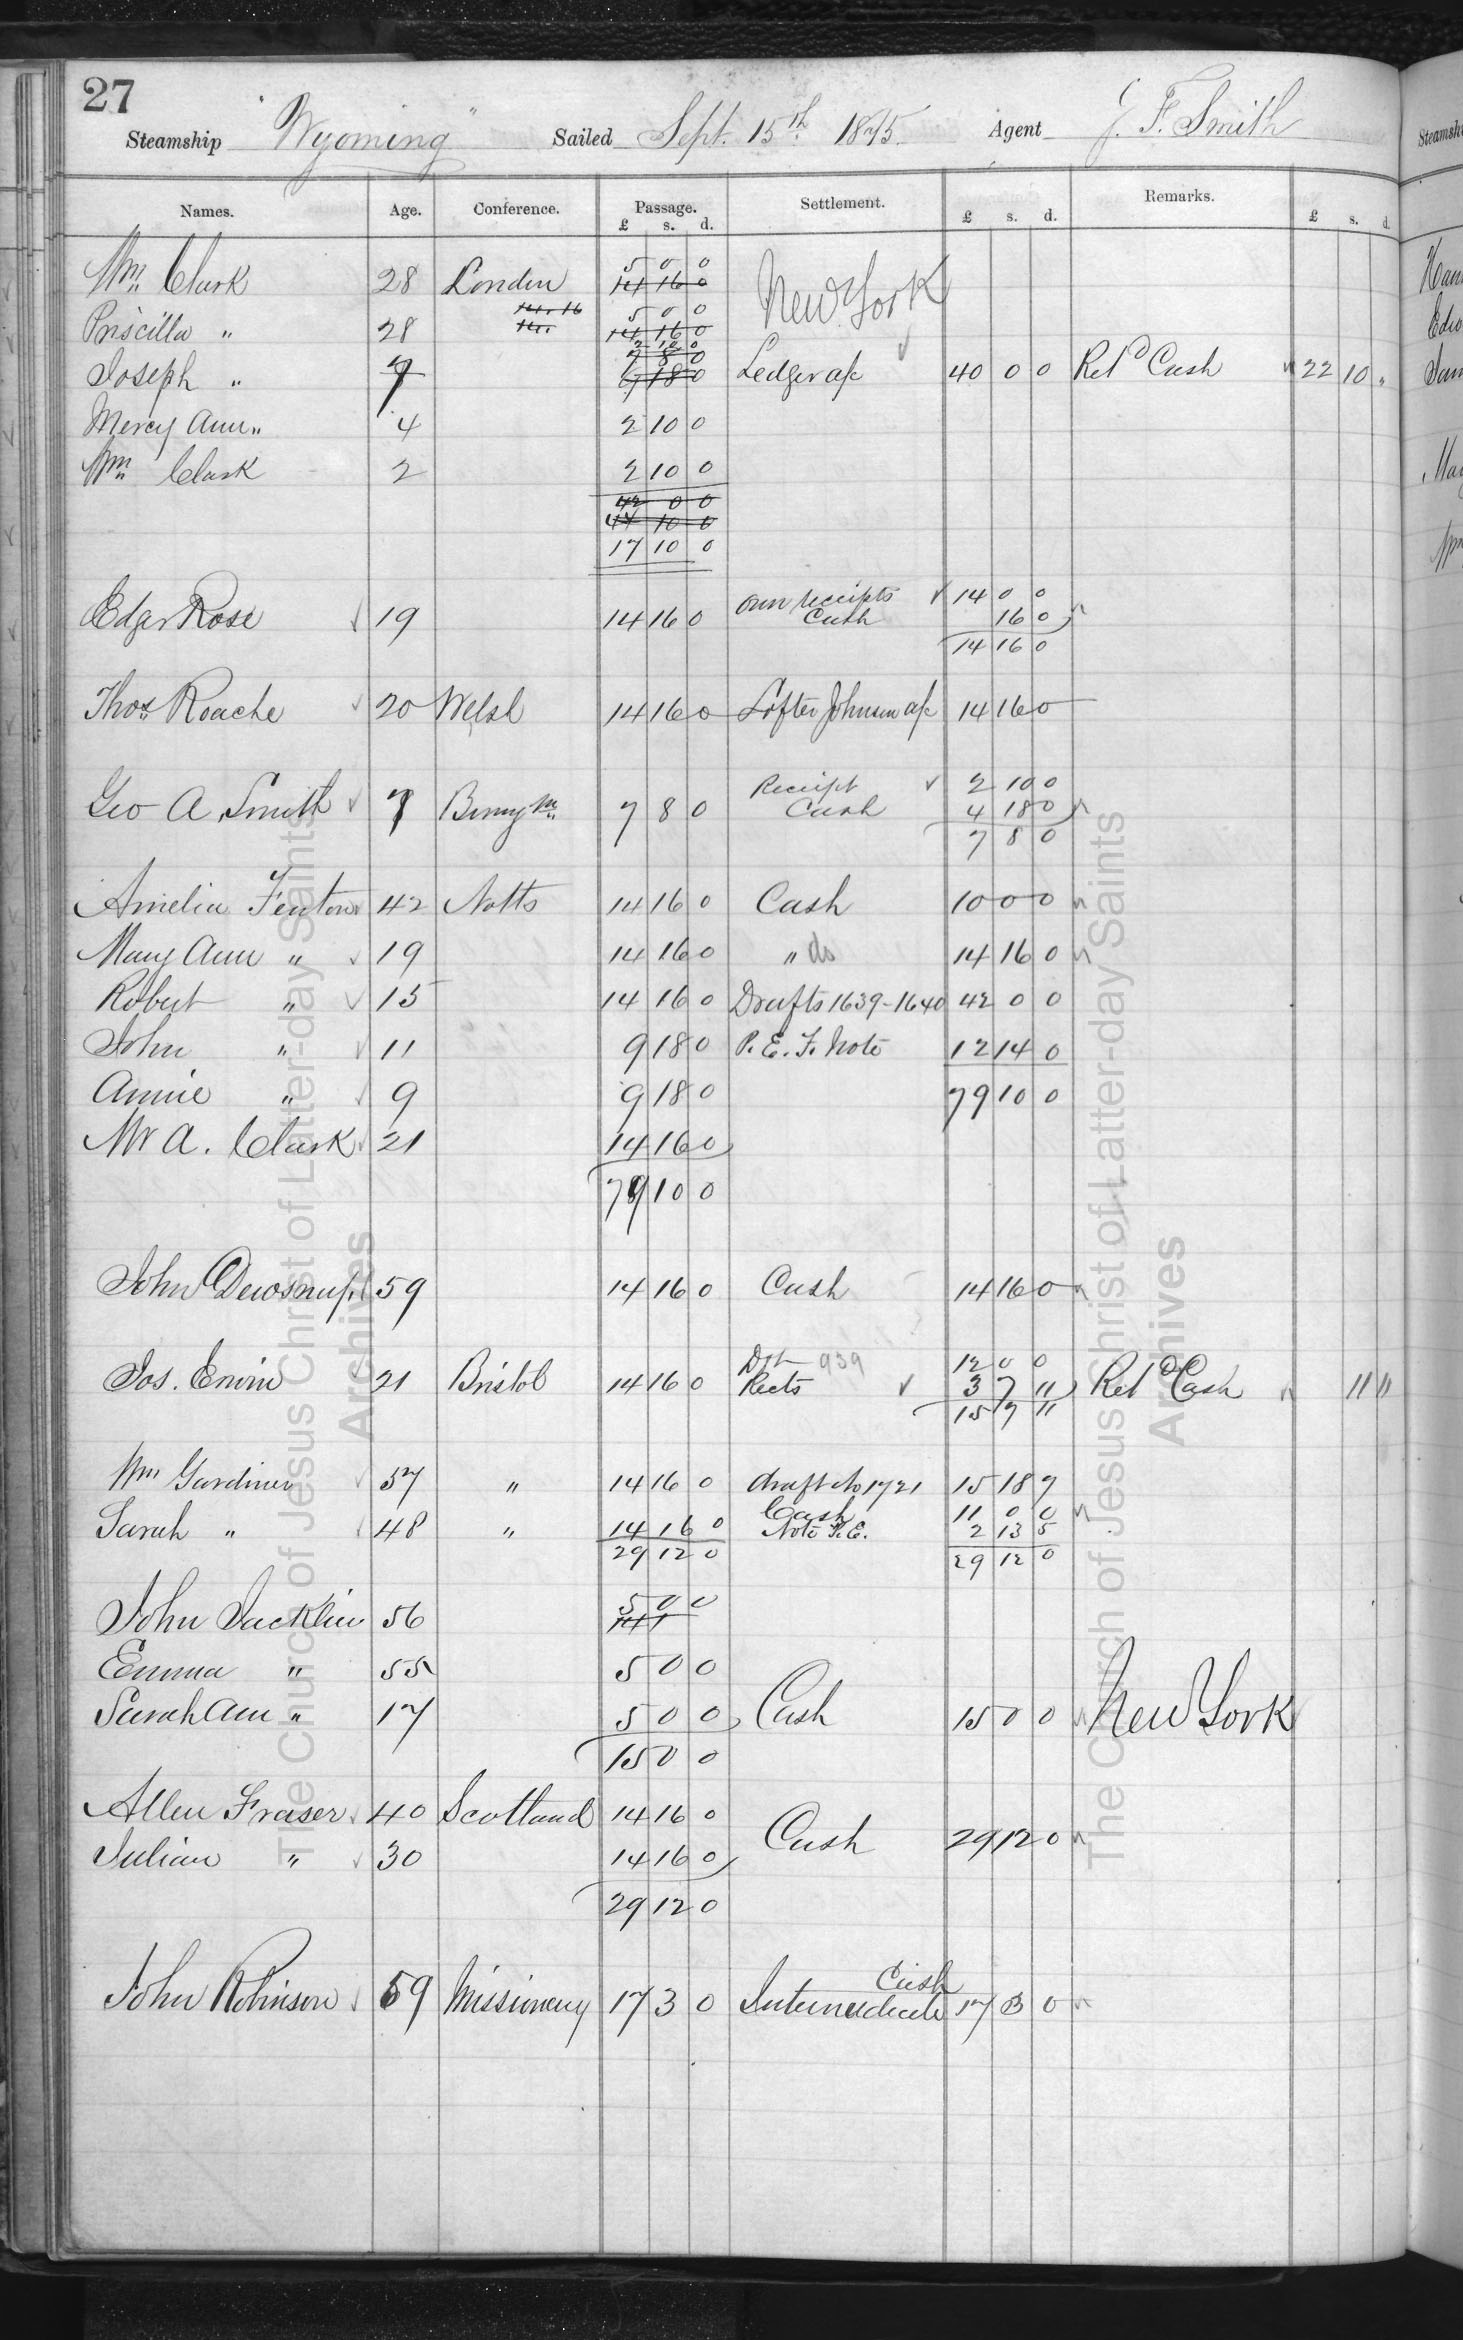 27
Steamship "Wyoming" Sailed Sept. 15th 1875. Agent J. F. Smith
Names. Age. Conference. Passage. Settlement. Remarks.
£ s. d. £ s. d. £ s. d.
Wm. Clark 28 London 5 0 0 New York
14 16 0
Priscilla " 28 5 0 0
14 16 0
2 10 0
7 8 0
Joseph " 7 Ledger a/c 40 0 0 Retd Cash 22 10 "
Mercy Ann " 4 2 10 0
Wm. Clark 2 2 10 0
42 0 0
44 10 0
17 10 0
Edgar Rose 19 14 16 0 own receipts 14 0 0
Cash 16 0
14 16 0
Thos. Roache 20 Welsh 14 16 0 Lofter Johnson a/c 14 16 0
Geo A. Smith 7 Birmgm. 7 8 0 Receipt 2 10 0
Cash 4 18 0
7 8 0
Amelia Fenton 42 Notts 14 16 0 Cash 10 0 0
Mary Ann " 19 14 16 0 " do 14 16 0
Robert " 15 14 16 0 Drafts 1639-1640 42 0 0
John " 11 9 18 0 P. E. F. Note 12 14 0
Annie " 9 9 18 0 79 10 0
Mr A. Clark 21 14 16 0
79 10 0
John Dewsnup 59 14 16 0 Cash 14 16 0
Jos. Erwin 21 Bristol 14 16 0 Dft 939 12 0 0
Rects 3 7 11 Retd Cash 11 11
15 7 11
Wm Gardiner 57 " 14 16 0 draft No 1721 15 18 7
Sarah " 48 " 14 16 0 Cash 11 0 0
Note P.E. 2 13 5
29 12 0 29 12 0
John Jacklin 56 5 0 0
14 1
Emma " 55 5 0 0
Sarah Ann " 17 5 0 0 Cash 15 0 0 New York
15 0 0
Allen Fraser 40 Scotland 14 16 0
Julian " 30 14 16 0 Cash 29 12 0
29 12 0
John Robinson 59 Missionary 17 3 0 Cash
Intermediate 17 3 0
The Church of Jesus Christ of Latter-day Saints
Archives
The Church of Jesus Christ of Latter-day Saints
Archives